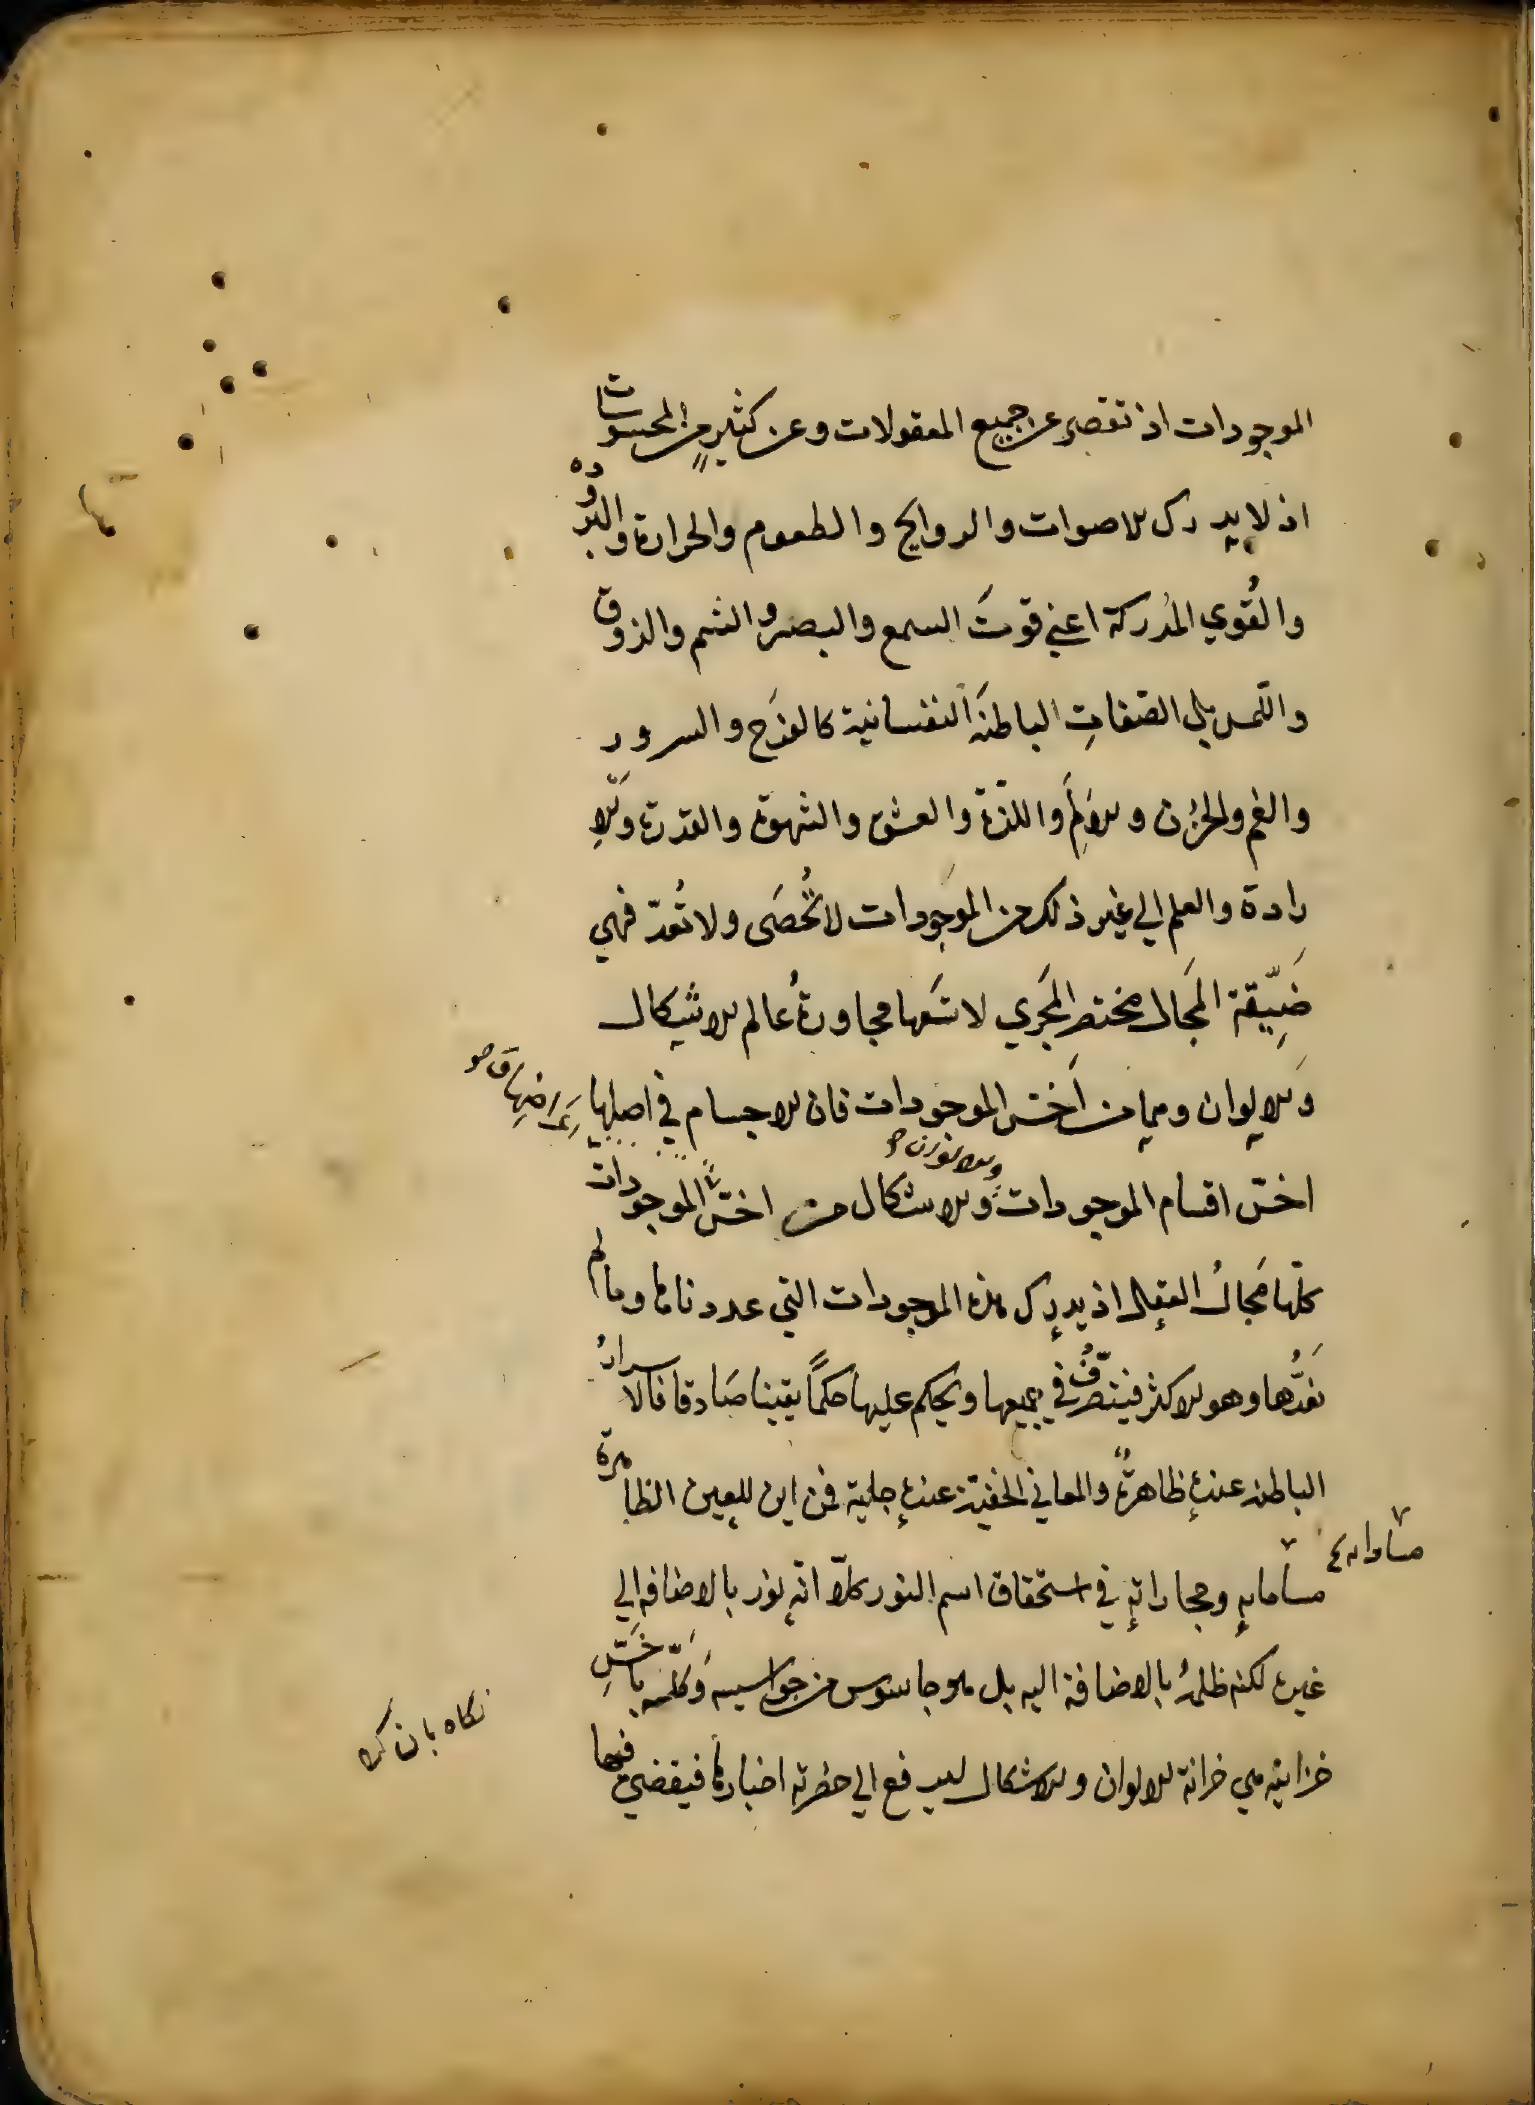 الموجودات اذ تقصر عن جميع المعقولات وعن كثيرٍ من المحسوسات
اذ لا يدرك الاصوات والروايح والطعوم والحرارة والبرودة
والقُوي المُدركة اعني قوتَ السمع والبصر والشم والذوق
واللمس بل الصّفاتِ الباطنَة النفسانية كالفرَح والسرور
والغم والحزن والالَم واللذّة والعشق والشهوة والقدرة والاِ
رادة والعلم الي غير ذلك من الموجودات لا تُحصَى ولا تُعدّ فهي
ضَيِّقة المَجال مختصر المَجري لا تسَعها مجاورةُ عالم الاشكال
والالوان وهما من اَخسّ الموجودات فان الاجسام في اصلها
اخسّ اقسام الموجودات والاشكال من اخسّ الموجودات
والالوان
كلّها مَجالُ العقل اذ يدرك هذه الموجودات التي عددناها وما لم
نعَدُّها وهو الاكثر فيتصرّفُ في جميعها ويحكم عليها حكمًا يقينا صَادقا فالاسرارُ
الباطنه عنده ظاهرةٌ والمعاني الخفية عنده جلية فمن اين للعين الظاهرة
مساماته ومجاراته في استحقاق اسم النور كلّا انّه نور بالاضافه الي
غيره لكنه ظلمةٌ بالاضافة اليه بل هو جاسوس من جواسيسه وَكّلَه باَخَسِّ
خزاينه هي خزانة الالوان والاشكال ليرفع الي حضرته اخبارها فيقضي فيها
نكاه بان كرد